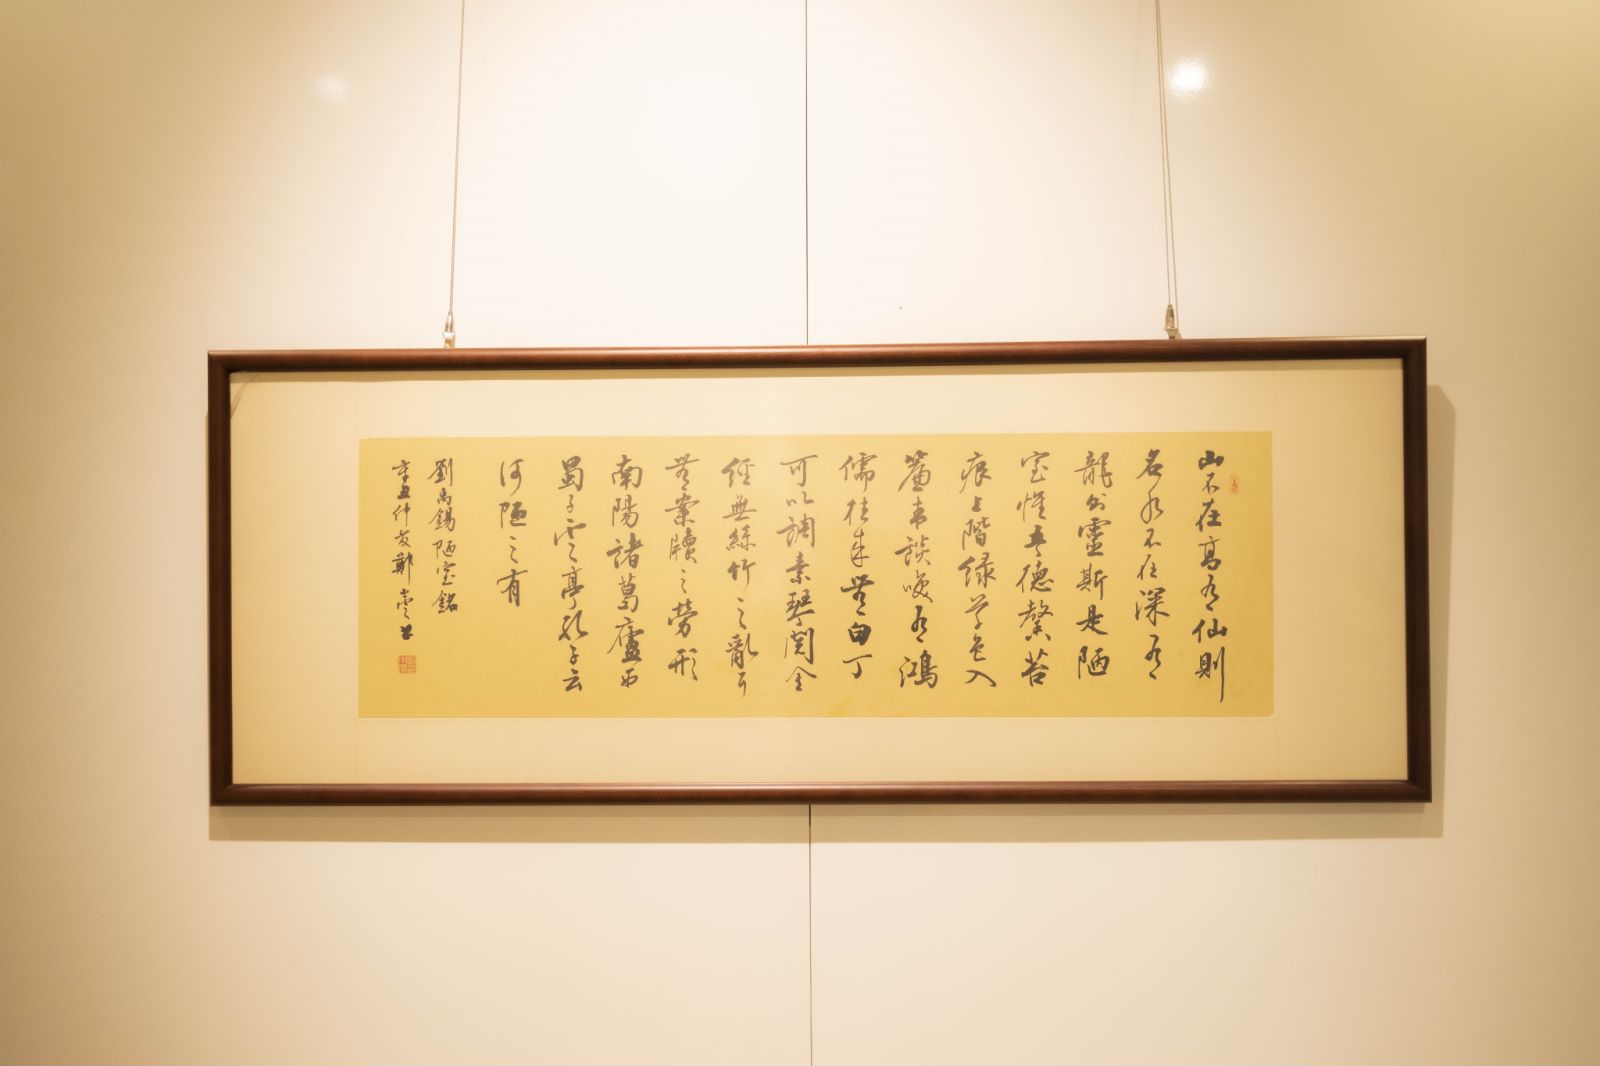 山不在高有仙則
名水不在深有
龍則靈斯是陋
室惟吾德馨苔
痕上階緑草色入
簾青談笑有鴻
儒往來無白丁
可以調素琴閱金
經無絲竹之亂耳
無案牘之勞形
南陽諸葛廬西
蜀子雲亭孔子云
何陋之有
劉禹錫陋室銘
辛丑仲夏鄭書